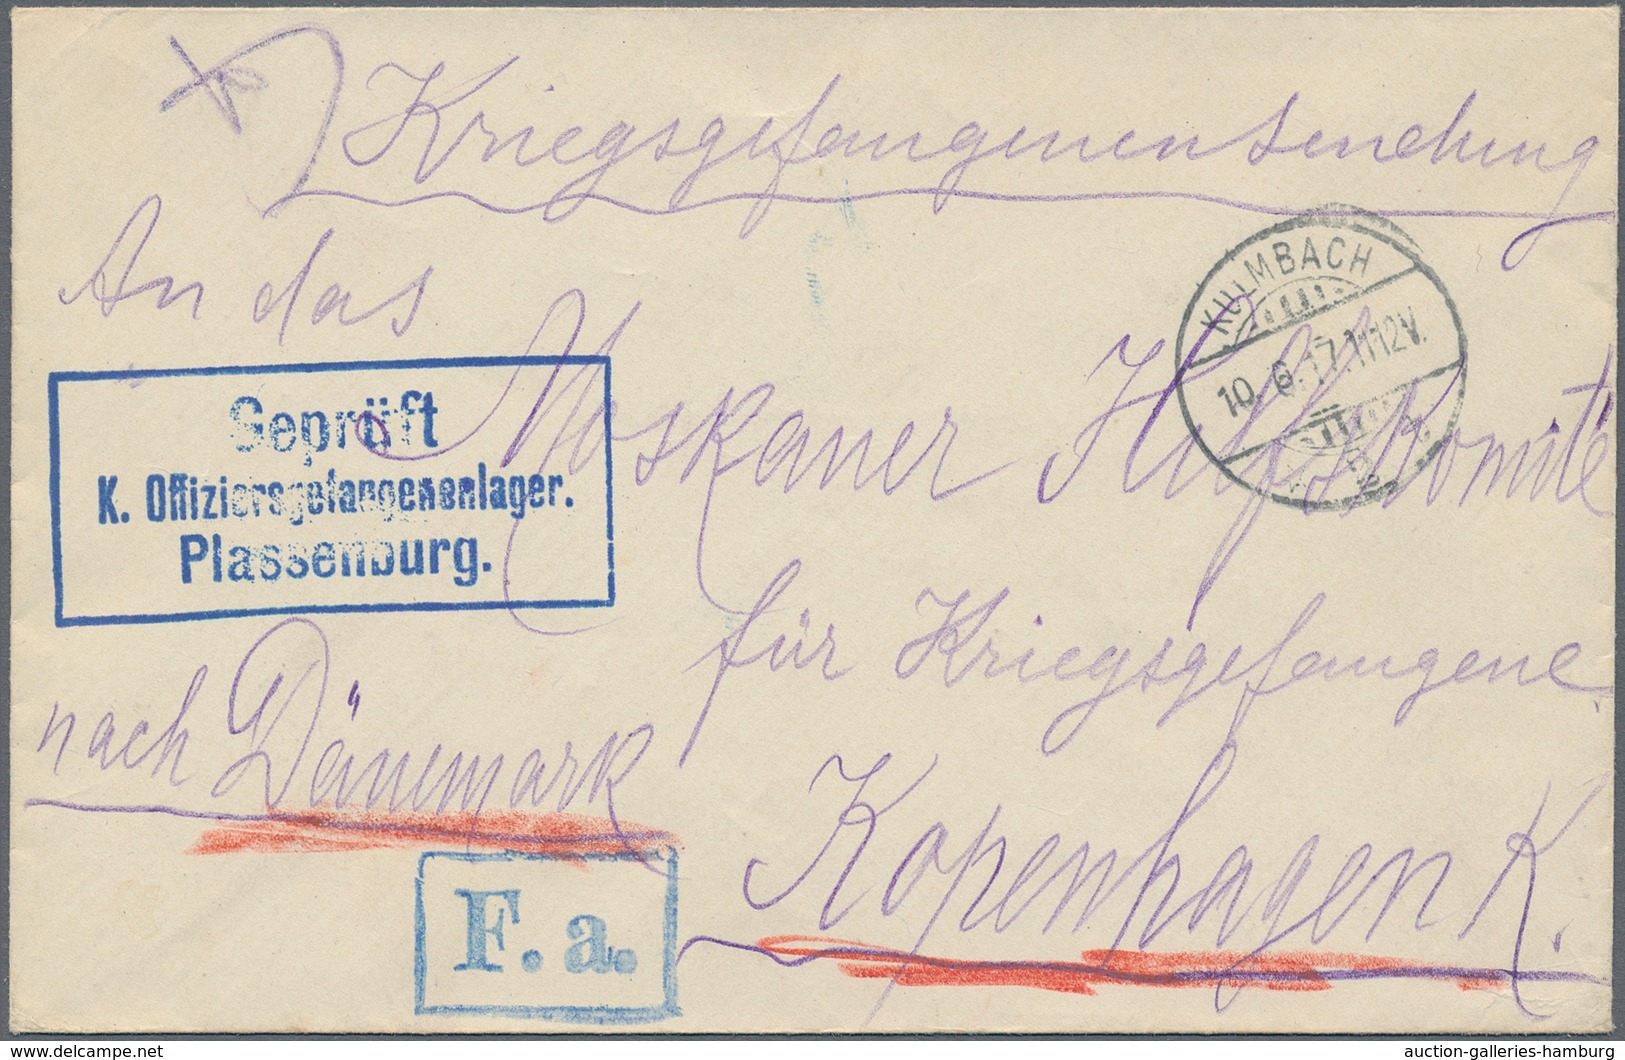 Kriegsgefangenensendung
An das
Moskauer Hilfskomité
für Kriegsgefangene
Kopenhagen K.
nach Dänemark
Geprüft
K. Offiziersgefangenenlager.
Plassenburg.
KULMBACH
10. 6. 17. 11-12V.
F. a.
akpool.com
auction-galleries-hamburg